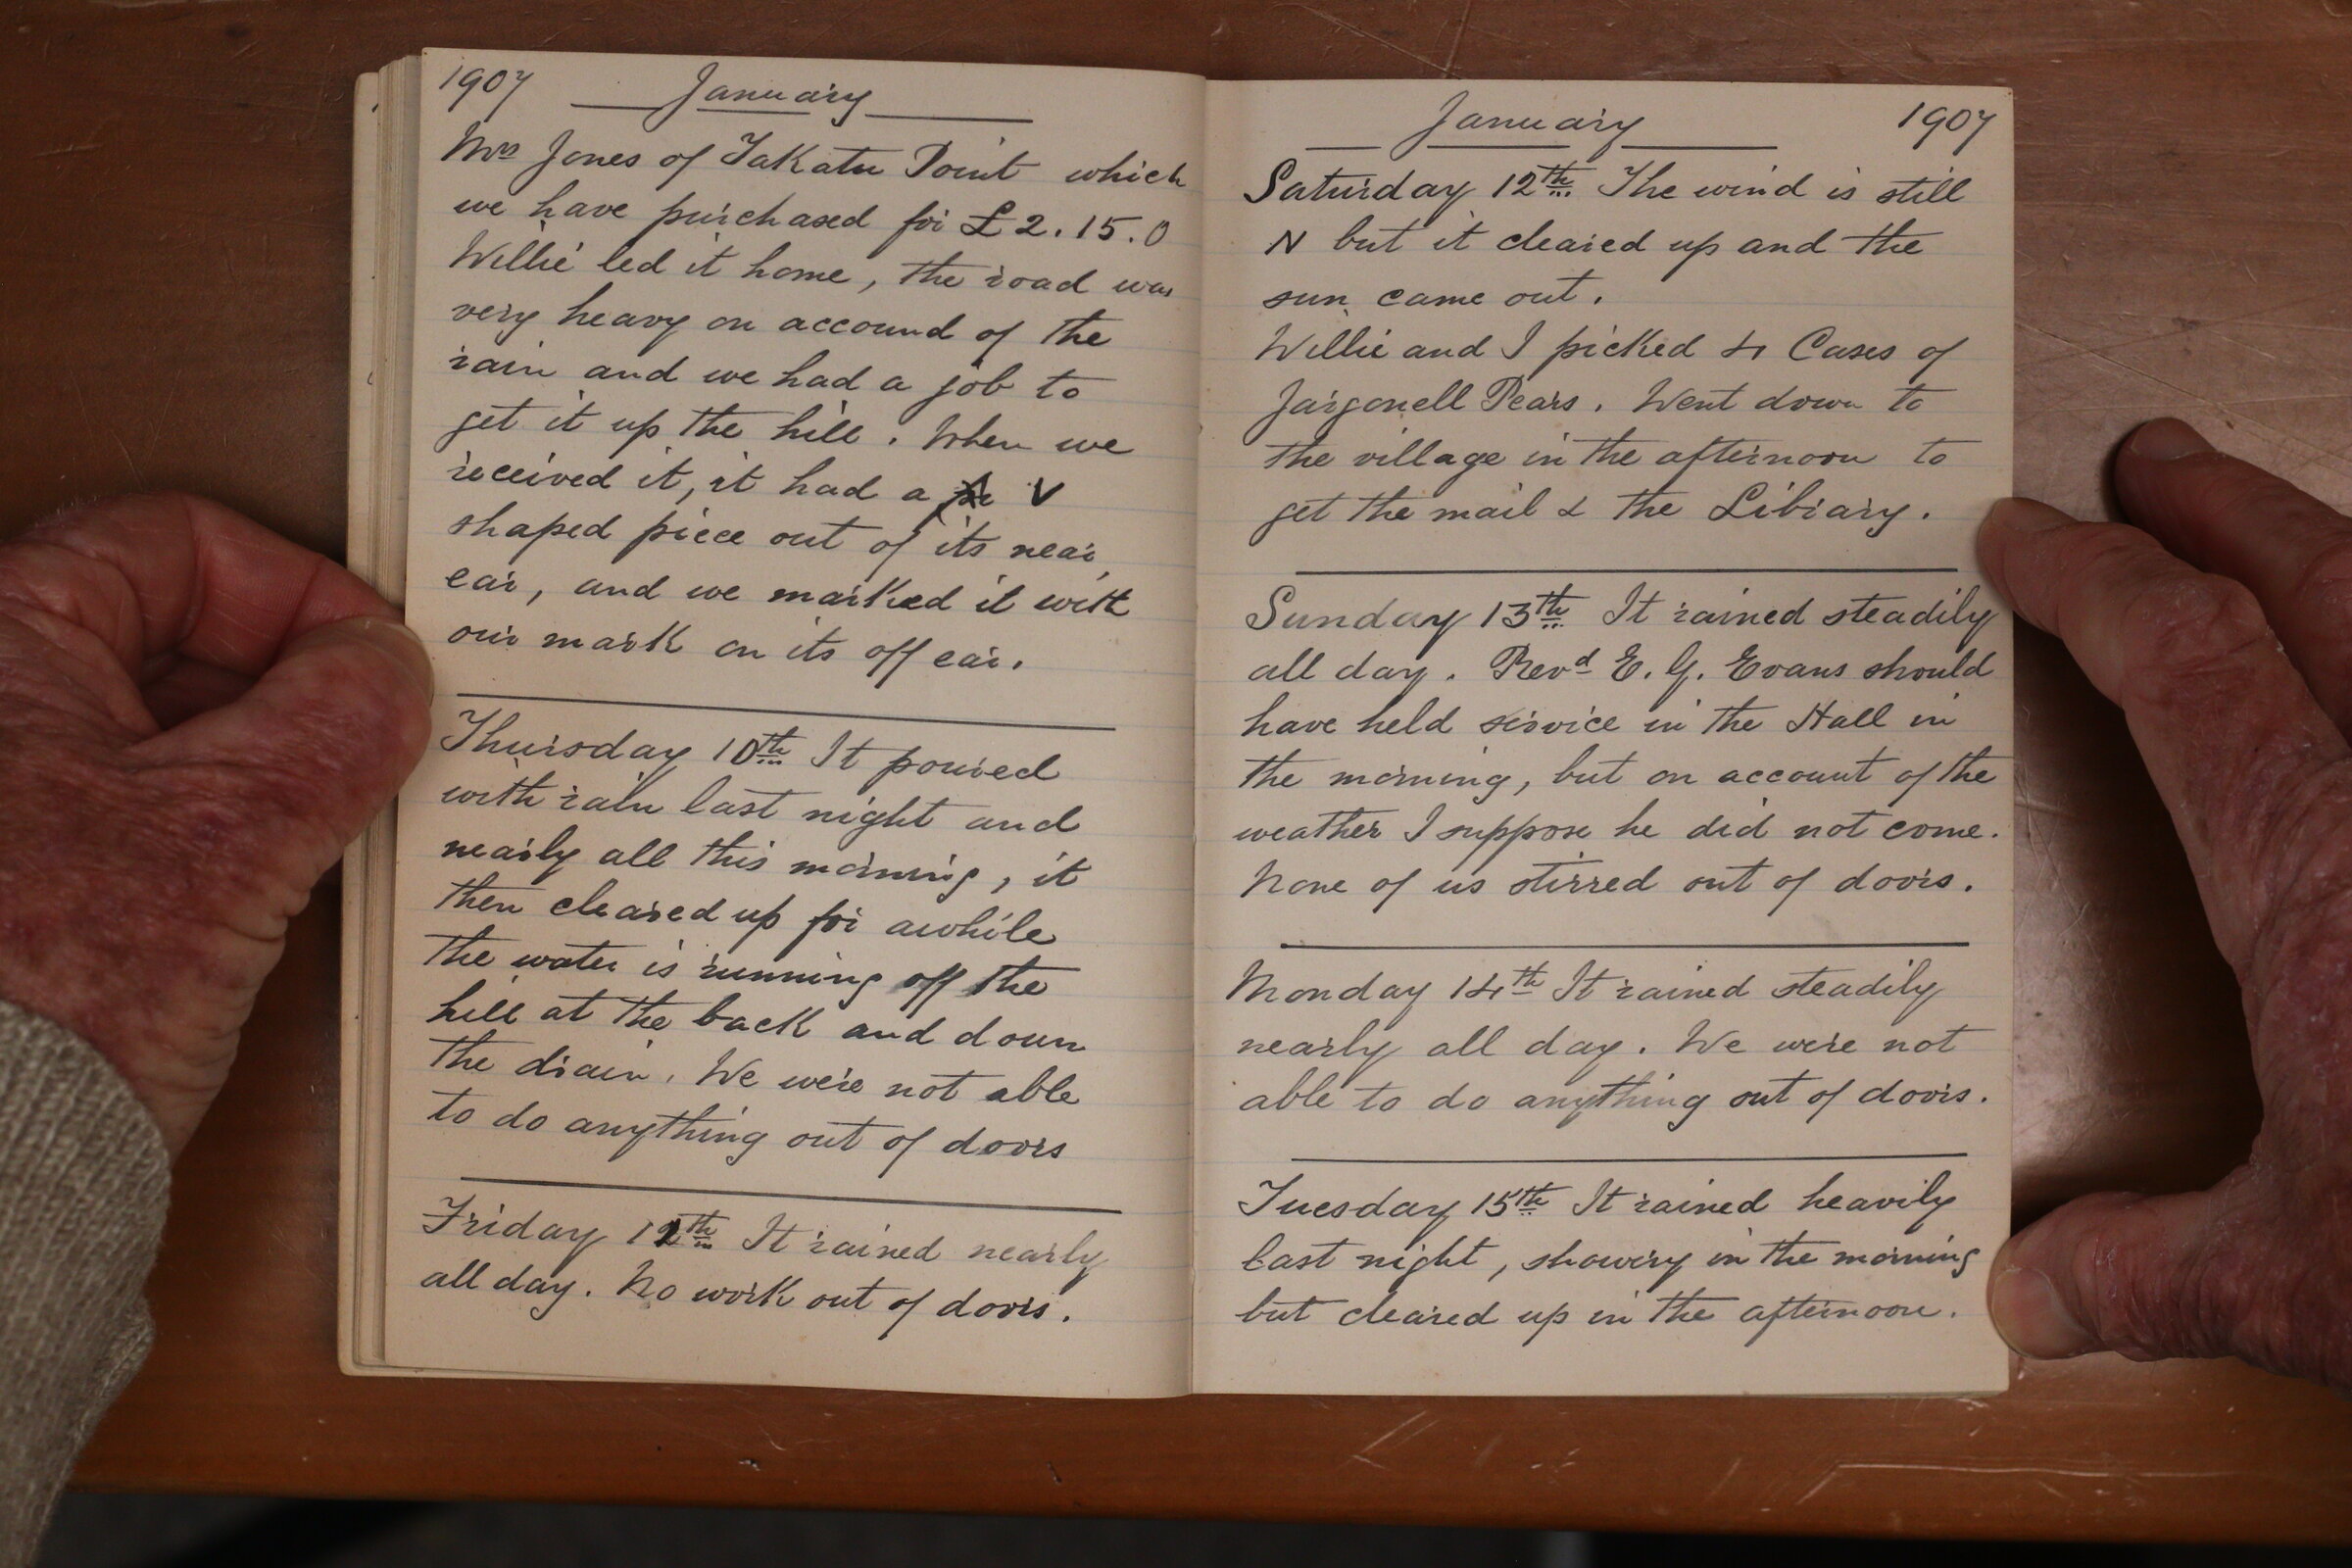 1907 January
Mrs Jones of Takatu Point which
we have purchased for £2.15.0
Willie led it home, the road was
very heavy on accound of the
rain and we had a job to
get it up the hill. When we
received it, it had a V
shaped piece out of its near
ear, and we marked it with
our mark on its off ear.
Thursday 10th It poured
with rain last night and
nearly all this morning, it
then cleared up for awhile
the water is running off the
hill at the back and down
the drain. We were not able
to do anything out of doors
Friday 12th It rained nearly
all day. No work out of doors.
January 1907
Saturday 12th The wind is still
N but it cleared up and the
sun came out.
Willie and I picked 4 Cases of
Jargonell Pears. Went down to
the village in the afternoon to
get the mail & the Library.
Sunday 13th It rained steadily
all day. Revd E. G. Evans should
have held service in the Hall in
the morning, but on account of the
weather I suppose he did not come.
None of us stirred out of doors.
Monday 14th It rained steadily
nearly all day. We were not
able to do anything out of doors.
Tuesday 15th It rained heavily
last night, showery in the morning
but cleared up in the afternoon.